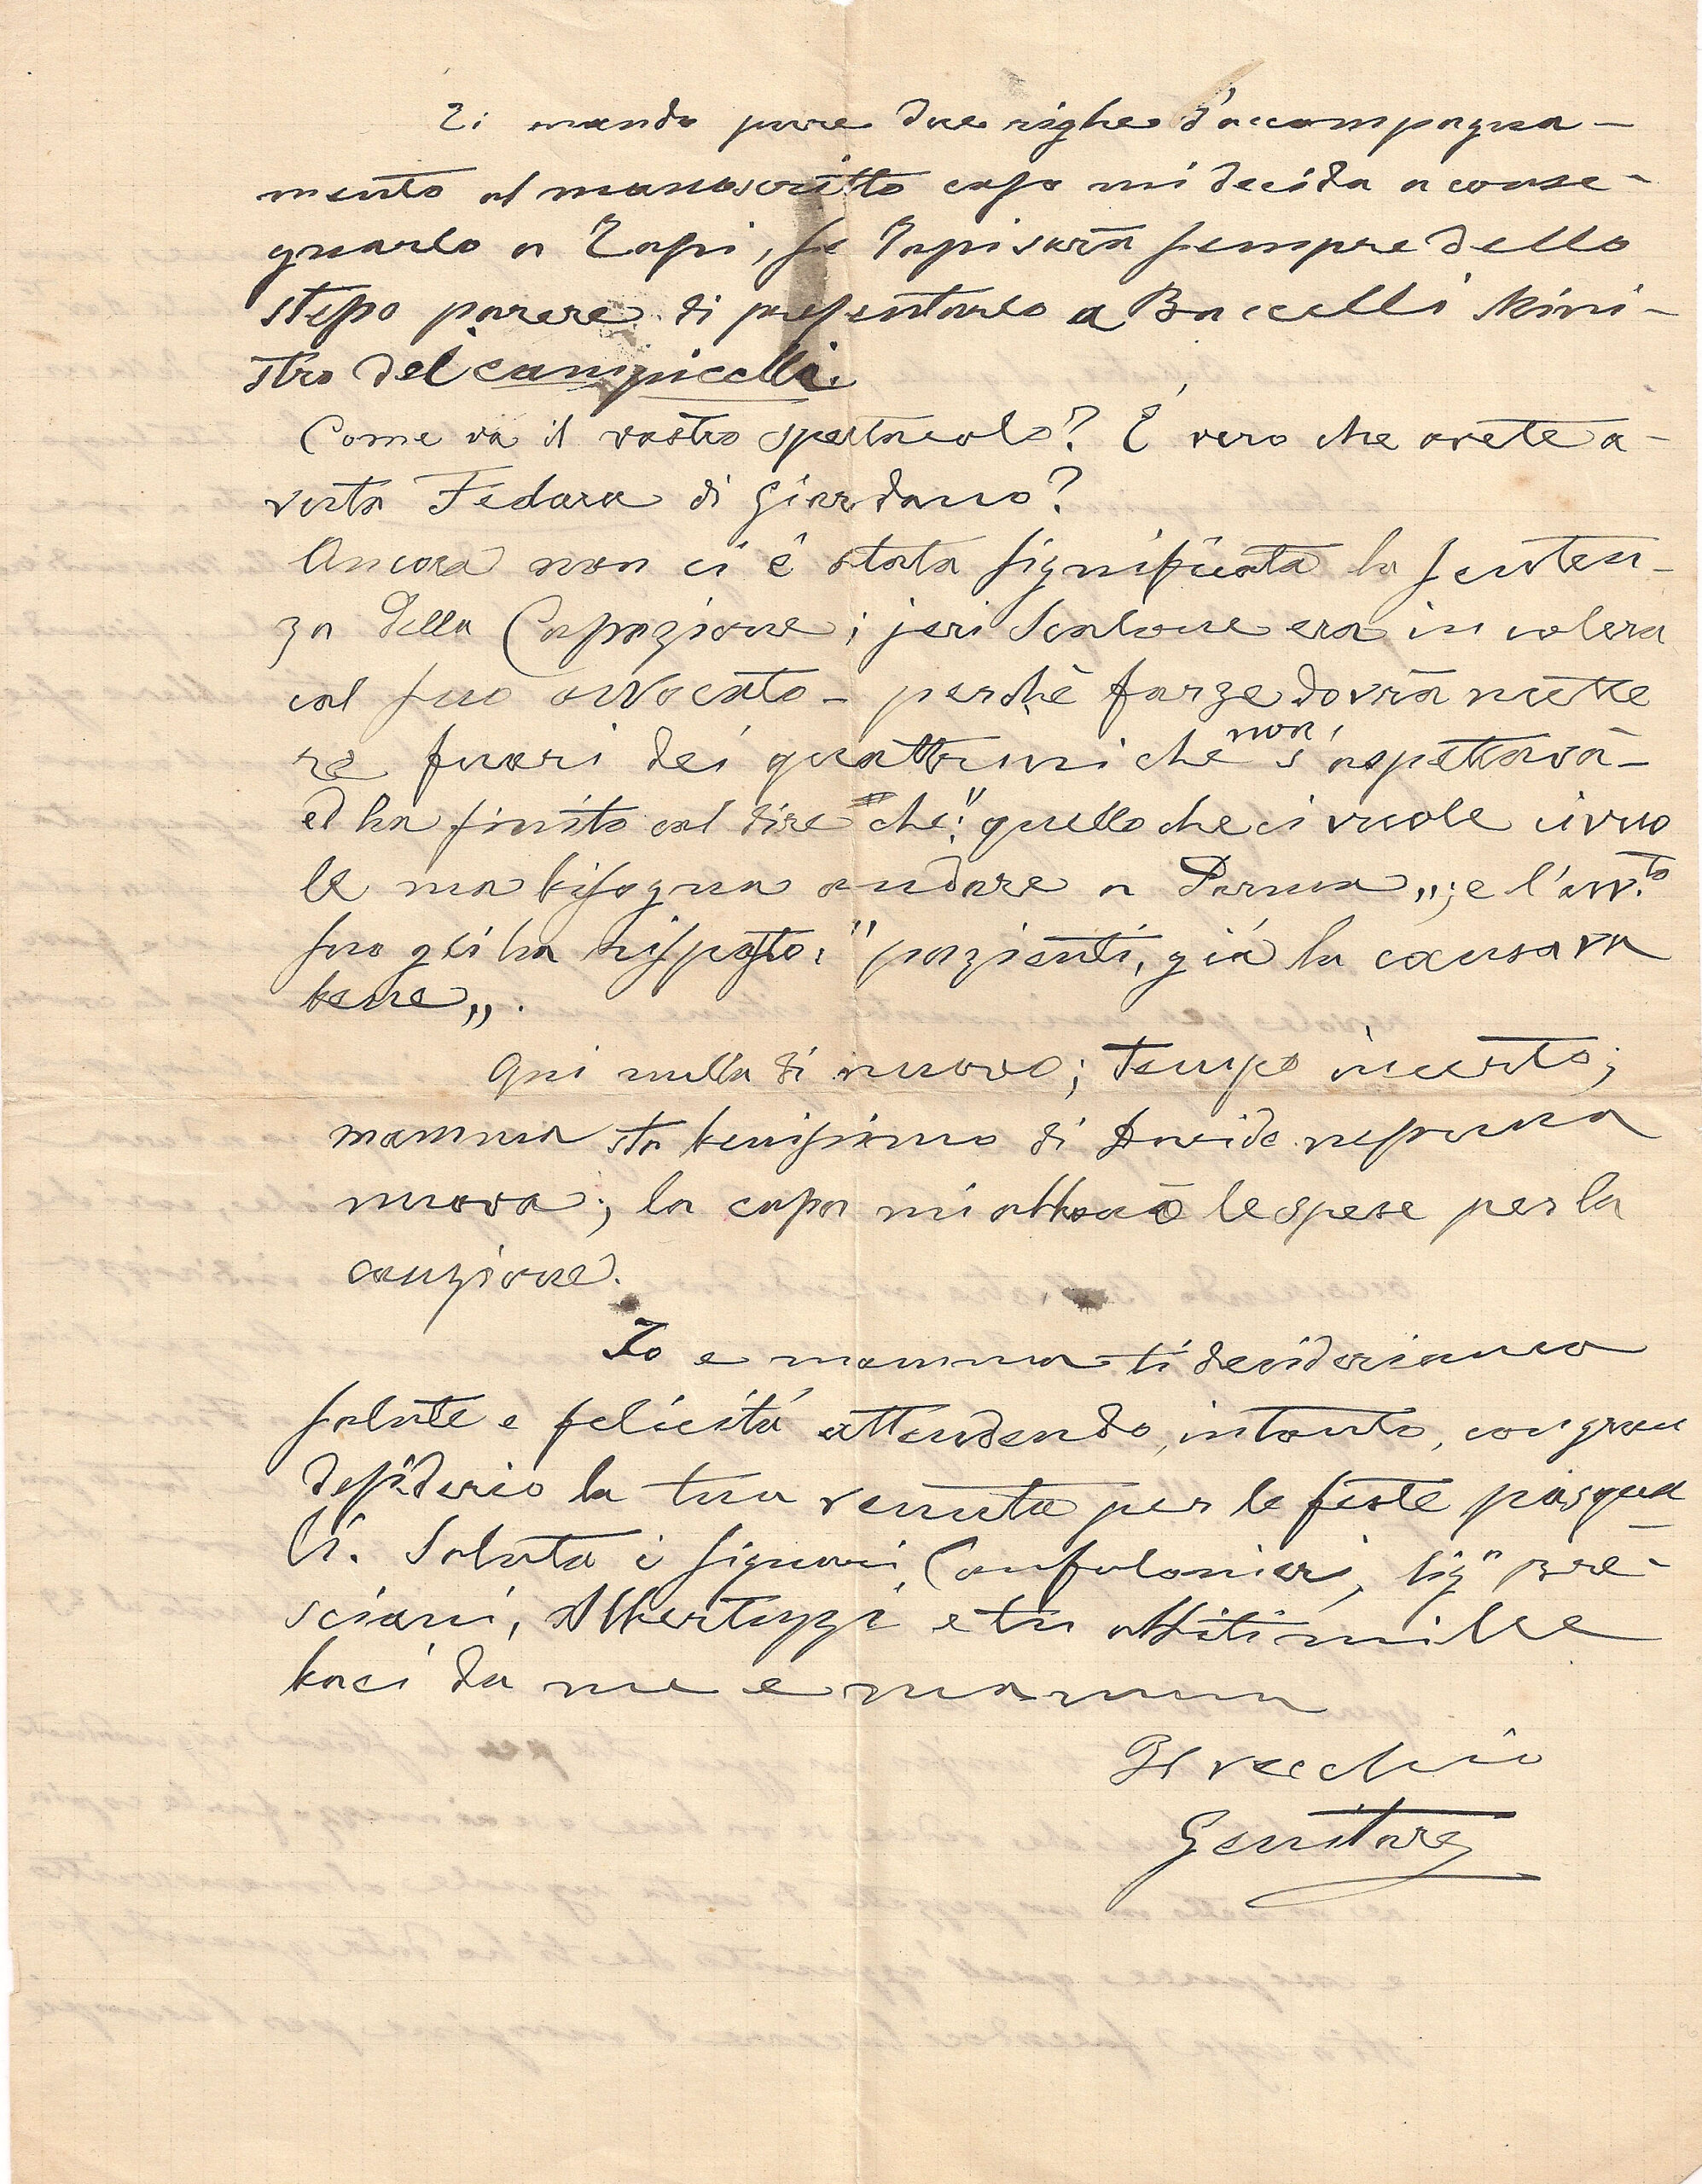 Ti mando pure due righe d'accompagna-
mento al manoscritto caso mi decida a conse-
gnarlo a Tapi, se Tapi sarà sempre dello
stesso parere di presentarlo a Baccelli Mini-
stro dei campicelli.
Come va il vostro spettacolo? È vero che avete a-
vuta Fedora di Giordano?
Ancora non ci è stata significata la senten-
za della Cassazione; jeri Scalone era in colera
col suo avvocato - perchè forze dovrà mette
re fuori dei quattrini che non s'aspettava -
ed ha finito col dire che: "quello che ci vuole ci vuo
le ma bisogna andare a Parma„; e l'avv.to
suo gli ha risposto: "pazienti, già la causa va
bene„.
Qui nulla di nuovo; tempo incerto;
mamma sta benissimo di Davide nessuna
nuova; la casa mi abbuonò le spese per la
cauzione.
Io e mamma ti desideriamo
salute e felicità attendendo, intanto, con gran
desiderio la tua venuta per le feste pasqua
li. Saluta i signori Confalonieri, Sig.ri Bre-
sciani, Albertuzzi e tu abbiti mille
baci da me e mamma
Il vecchio
Genitore